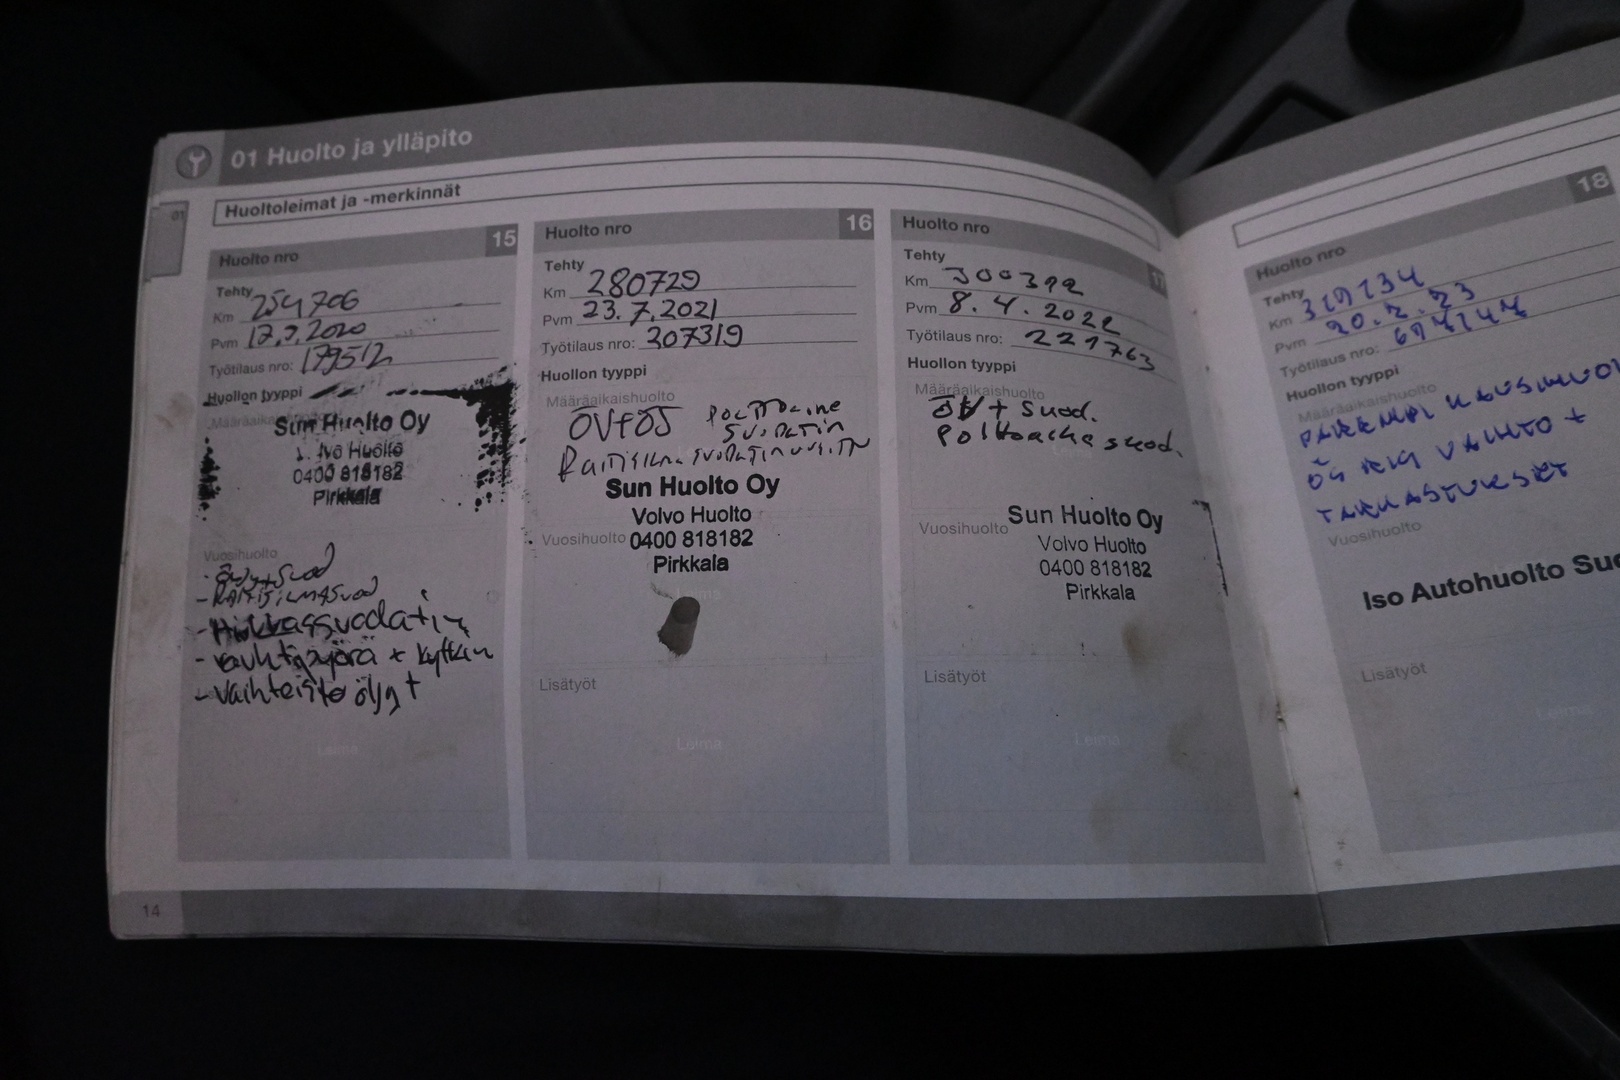 01 Huolto ja ylläpito
01
Huoltoleimat ja -merkinnät
Huolto nro 15
Tehty
Km 254706
Pvm 17.9.2020
Työtilaus nro: 179512
Huollon tyyppi
Määräaikaishuolto
Sun Huolto Oy
Huolto
0400 818182
Pirkkala
Vuosihuolto
- Raitisilmasuod
- Hiukkassuodatin
- vauhtipyörä + kytkin
- Vaihteisto öljyt
Leima
Huolto nro 16
Tehty
Km 280729
Pvm 23.7.2021
Työtilaus nro: 207319
Huollon tyyppi
Määräaikaishuolto
ÖV+ÖS Polttoaine
suodatin
Raitisilma suodatin
Sun Huolto Oy
Volvo Huolto
Vuosihuolto 0400 818182
Pirkkala
Leima
Lisätyöt
Leima
Huolto nro 17
Tehty
Km 300392
Pvm 8.4.2022
Työtilaus nro: 221763
Huollon tyyppi
Määräaikaishuolto
ÖV + Suod.
Polttoaine suod.
Leima
Vuosihuolto
Sun Huolto Oy
Volvo Huolto
0400 818182
Pirkkala
Lisätyöt
Leima
14
Huolto nro 18
Tehty
Km 319134
Pvm 20.2.23
Työtilaus nro:
Huollon tyyppi
Määräaikaishuolto
VAIHTO +
TARKASTUKSET
Vuosihuolto
Iso Autohuolto
Lisätyöt
Leima